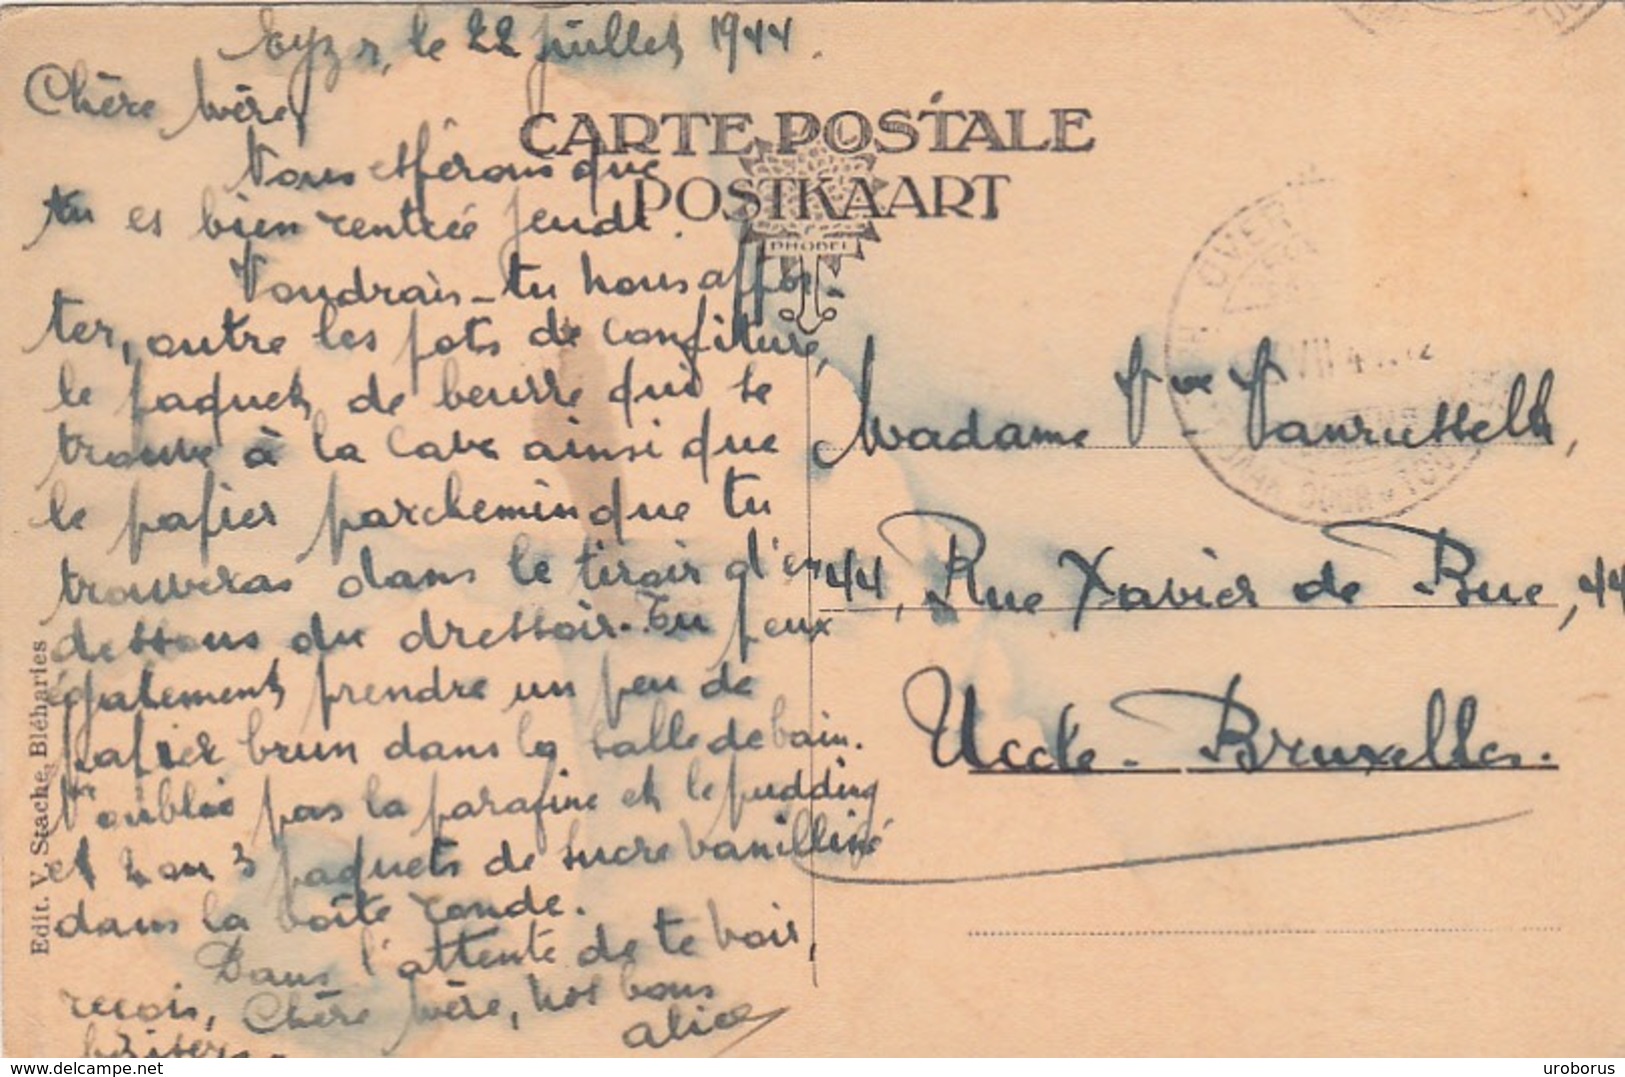 le 22 juillet 1944
CARTE POSTALE
POSTKAART
PHOBEL
Chère Mère,
Nous espérons que
tu es bien rentrée jeudi.
Voudrais-tu nous appor-
ter, outre les pots de confiture,
le paquet de beurre qui se
trouve à la cave ainsi que
le papier parchemin que tu
trouveras dans le tiroir d'en
dessous du dressoir. Tu peux
également prendre un peu de
papier brun dans la salle de bain.
N'oublie pas la parafine et le pudding
et 2 ou 3 paquets de sucre vanilliné
dans la boîte ronde.
Dans l'attente de te voir,
reçois, Chère Mère, nos bons
baisers.
Alice
Madame Vve V. Vanrusselt,
44, Rue Xavier de Bue, 44
Uccle - Bruxelles.
Edit. V. Stache, Bléharies
delcampe.net
uroborus